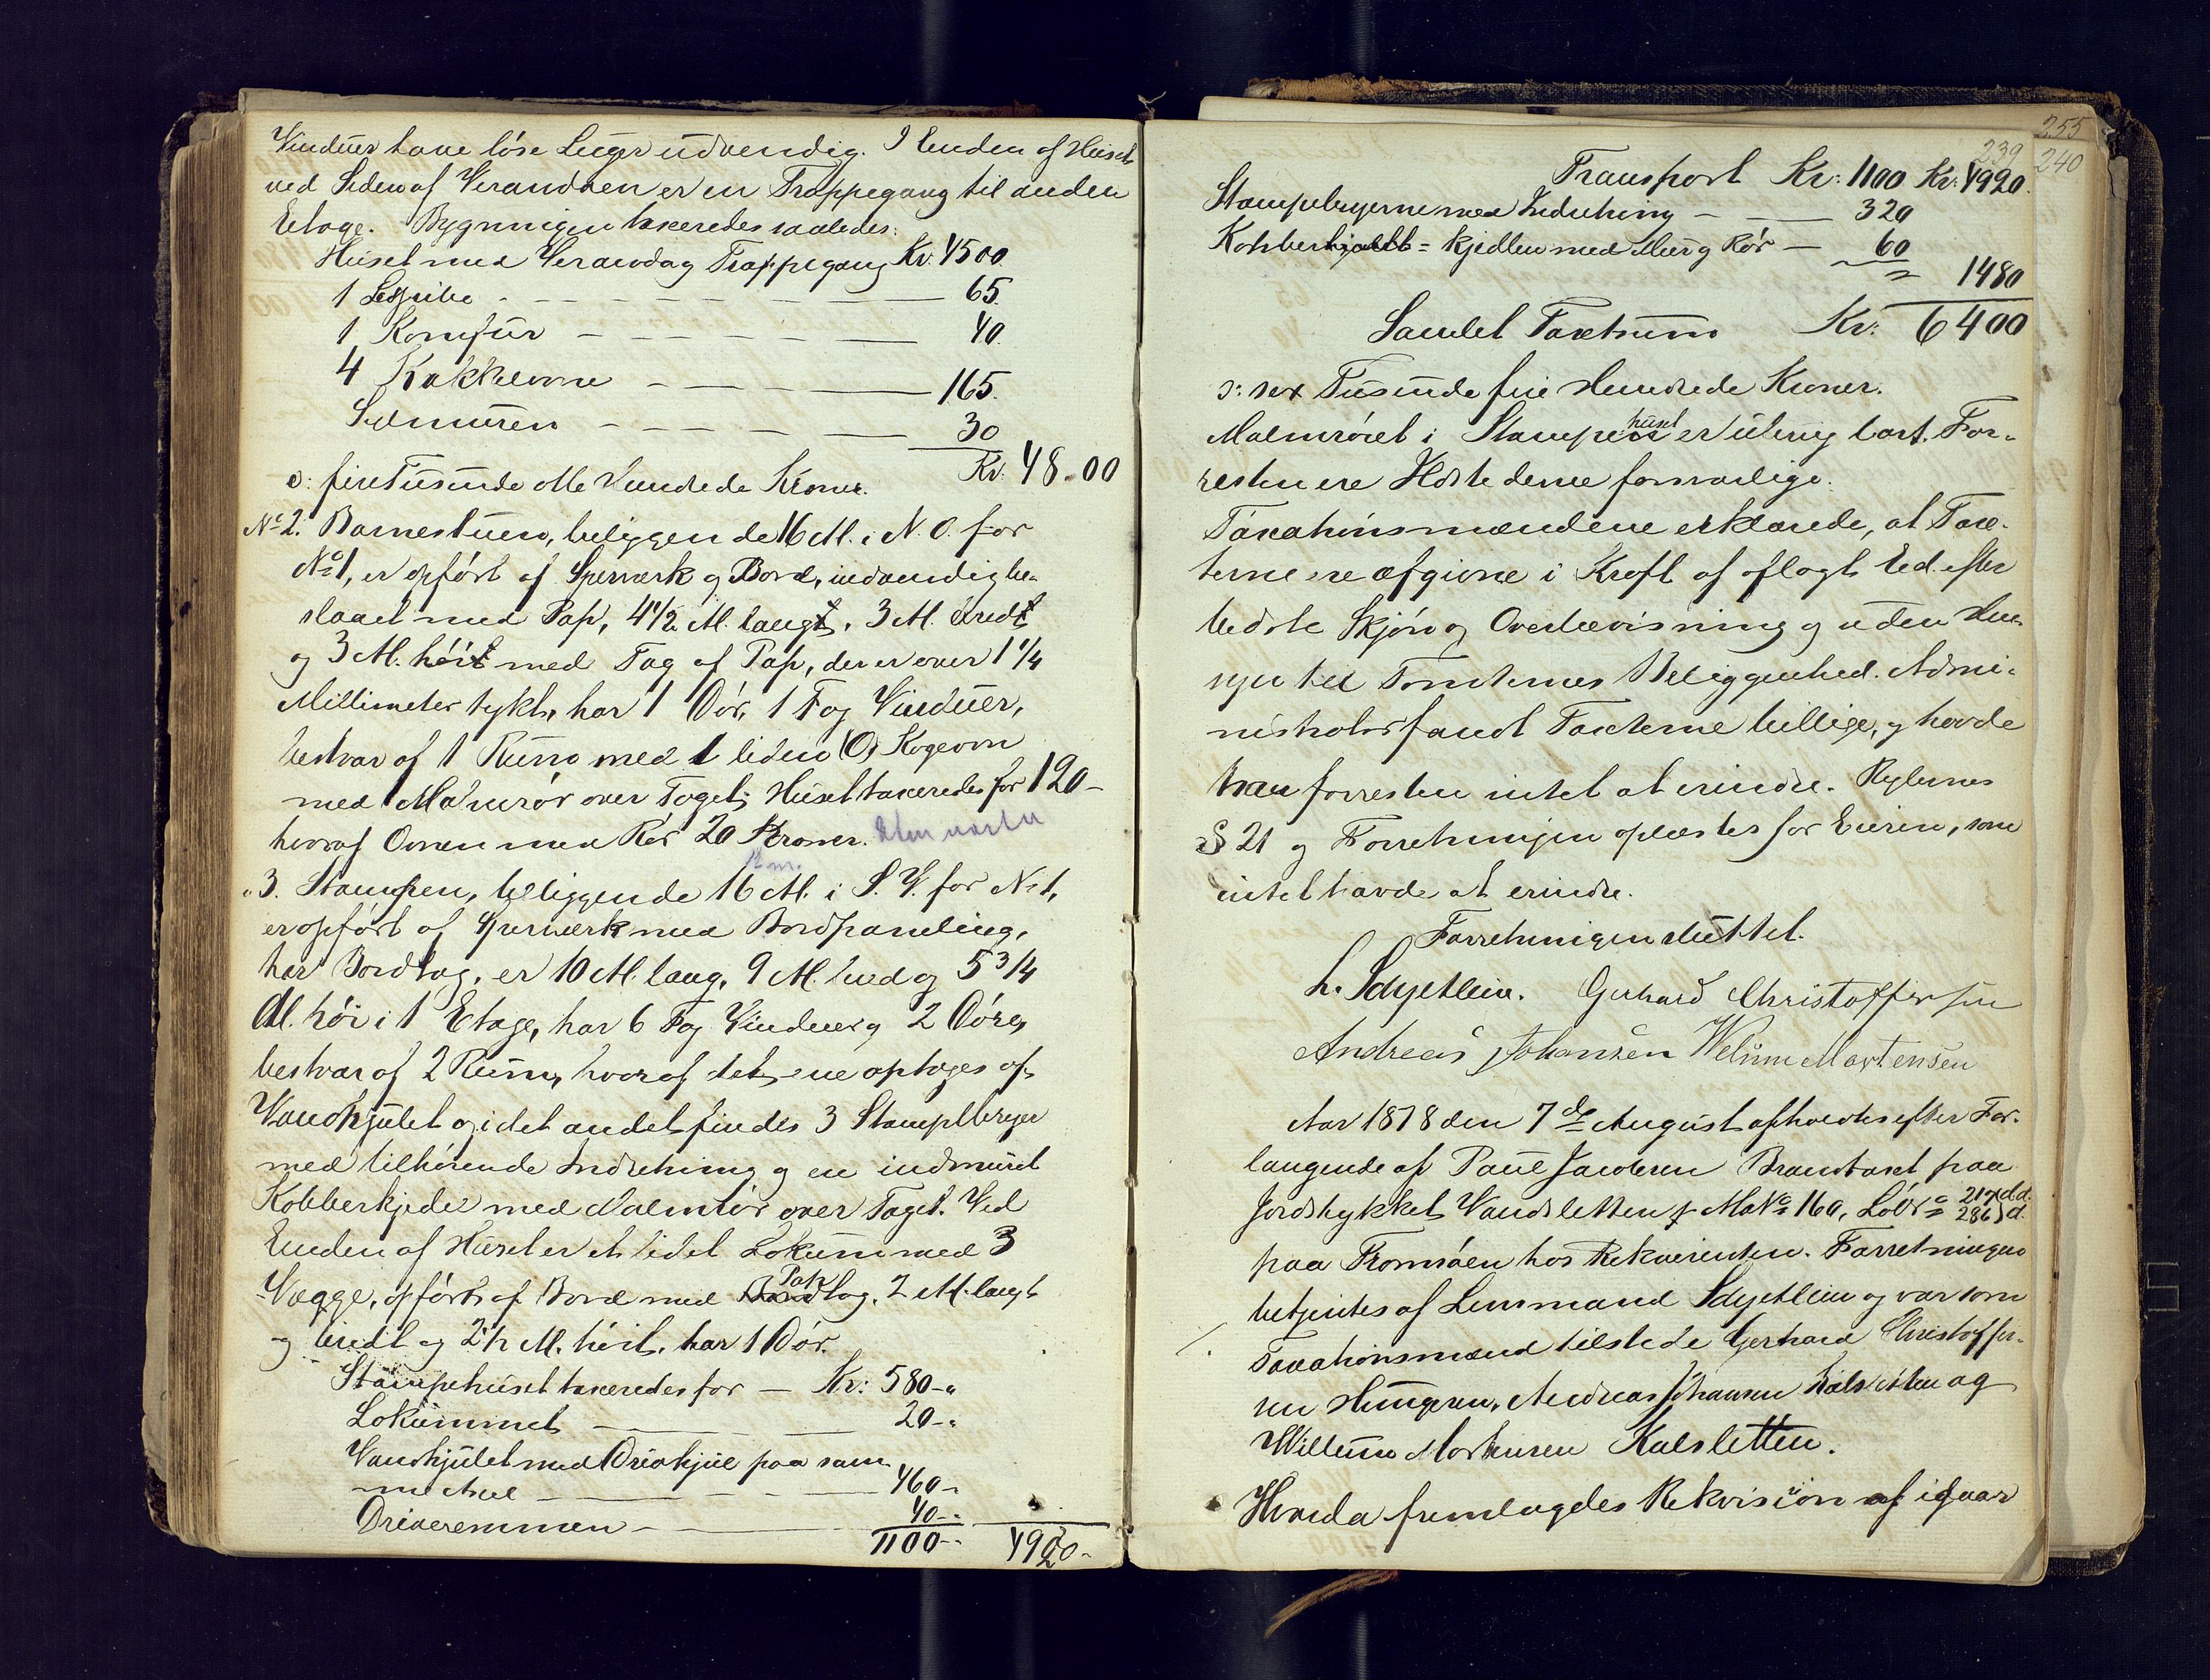 Vinduer have löse Luger udvendig. I Enden af Huset
ved Siden af Verandaen er en Trappegang til anden
Etage. Bygningen taxeredes saaledes:
Huset med Veranda og Trappegang Kr. 4500
1 — 65.
1 Komfur — 40.
4 Kakkelovne — 165.
30
ɔ: fire Tusinde otte Hundrede Kroner. Kr. 48.00
No 2. Barnestuen, beliggende 16 M. i N. O. for
No 1, er opfört af Sperværk og Bord, indvendig be-
slaaet med Pap, 4 1/2 M. langt, 3 M. bredt
og 3 M. höit med Tag af Pap, der er over 1 1/4
Millimeter tykt, har 1 Dör, 1 Fag Vinduer,
bestaar af 1 Rum med 1 liden Kogeovn
med Malmrör over Taget; Huset taxeredes for 120 –
hvoraf Ovnen med Rör 20 Kroner.
" 3. Stampen, beliggende 16 M. i S. V. for No 1,
er opfört af Sperværk med Bordpaneling,
har Bordtag, er 10 M. lang, 9 M. bred og 5 3/4
M. höi i 1 Etage, har 6 Fag Vinduer og 2 Döre,
bestaar af 2 Rum, hvoraf det ene optages af
Vandhjulet og i det andet findes 3 Stampebryer
med tilhörende Indretning og en indmuret
Kobberkjedel med Malmrör over Taget. Ved
Enden af Huset er et lidet Lokum med 3
Vægge, opfört af Bord med Paptag, 2 M. langt
og bredt og 2 1/2 M. höit, har 1 Dör.
Stampehuset taxeredes for — Kr: 580 – "
Lokummet — 20 – "
Vandhjulet med Drivhjul paa sam
me Axel — 460 –
Driveremmen — 40 – "
1100 – 4920 –
255
239 240
Transport Kr: 1100 Kr: 4920.
Stampebryerne med Indretning — 320
Kobberkjedlen med Mur og Rör — 60
" 1480
Samlet Taxtsum Kr: 6400
ɔ: sex Tusinde fire Hundrede Kroner.
Malmröret i Stampehuset er utrug bart. For-
resten ere Ildstederne forsvarlige.
Taxationsmændene erklærede, at Tax-
terne ere afgivne i Kraft af aflagt Ed efter
bedste Skjön og Overbevisning og uden Hen
syn til Tomternes Beliggenhed. Admi-
nistrator fandt Taxterne billige, og havde
han forresten intet at erindre. Reglernes
§ 21 og Forretningen oplæstes for Eieren, som
intet havde at erindre.
Forretningen sluttet.
L. Schjetlein. Gerhard Christoffersen
Andreas Johansen Willum Martensen
Aar 1878 den 7de August afholdtes efter For-
langende af Paul Jacobsen Brandtaxt paa
Jordstykket Vandsletten af M No 160, Lö No 217 d.d.
286 d.
paa Tromsöen hos Rekvirenten. Forretningen
betjentes af Lensmand Schjetlein og var som
Taxationsmænd tilstede Gerhard Christoffer-
sen Hungeren, Andreas Johansen Kalsletten og
Willum Mortensen Kalsletten.
Hvorda fremlagdes Rekvisition af igaar